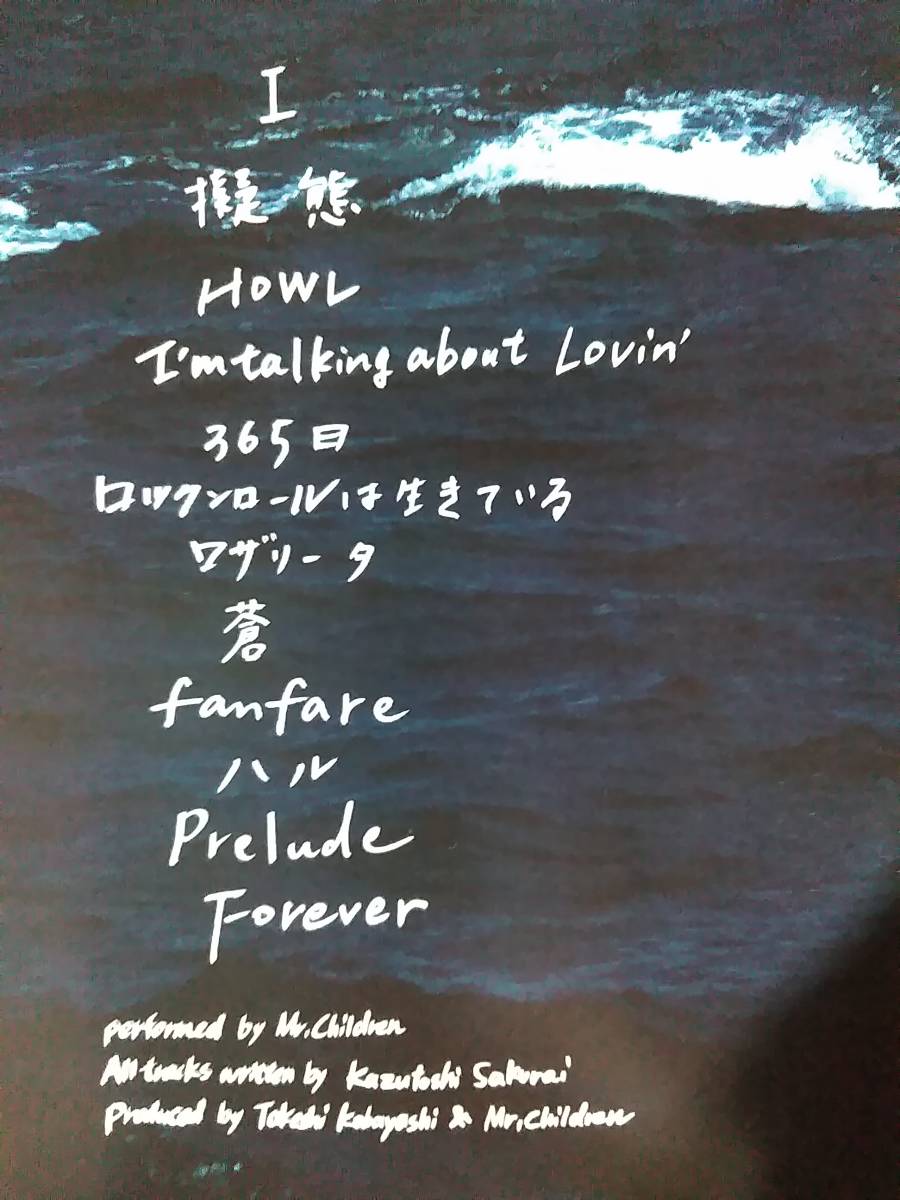 I
擬態
HOWL
I'm talking about Lovin'
365日
ロックンロールは生きている
ロザリータ
蒼
fanfare
ハル
Prelude
Forever
performed by Mr.Children
All tracks written by Kazutoshi Sakurai
Produced by Takeshi Kobayashi & Mr.Children